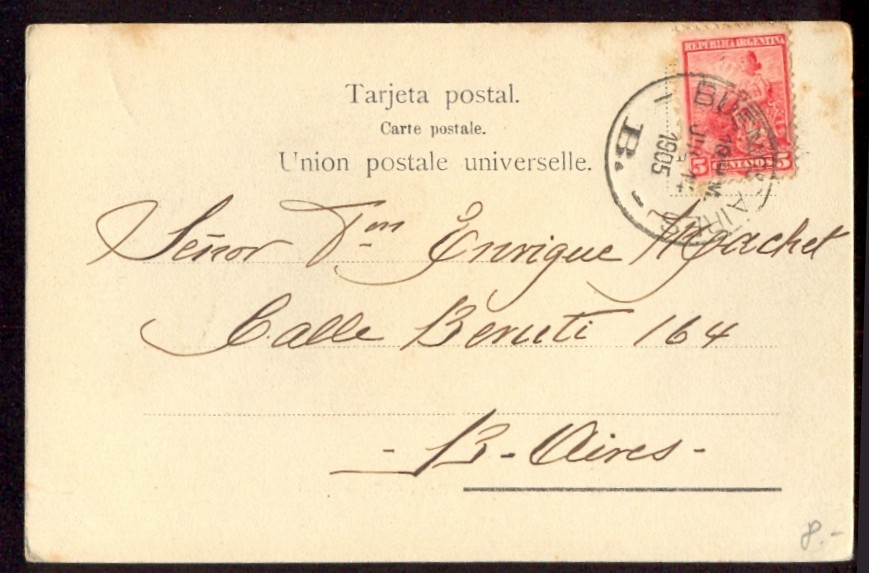 REPUBLICA ARGENTINA
5 CENTAVOS 5
BUENOS AIRES
1905
B.
Tarjeta postal.
Carte postale.
Union postale universelle.
Señor Dm Enrique Machet
Calle Beruti 164
- B - Aires -
8.-